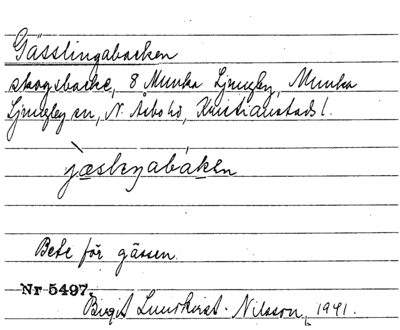 Gässlingabacken
skogsbacke, 8 Munka Ljungby, Munka
Ljungby sn, N. Åsbo hd, Kristianstads l.
Bete för gässen.
Nr 5497.
Birgit Lundkvist-Nilsson, 1941.